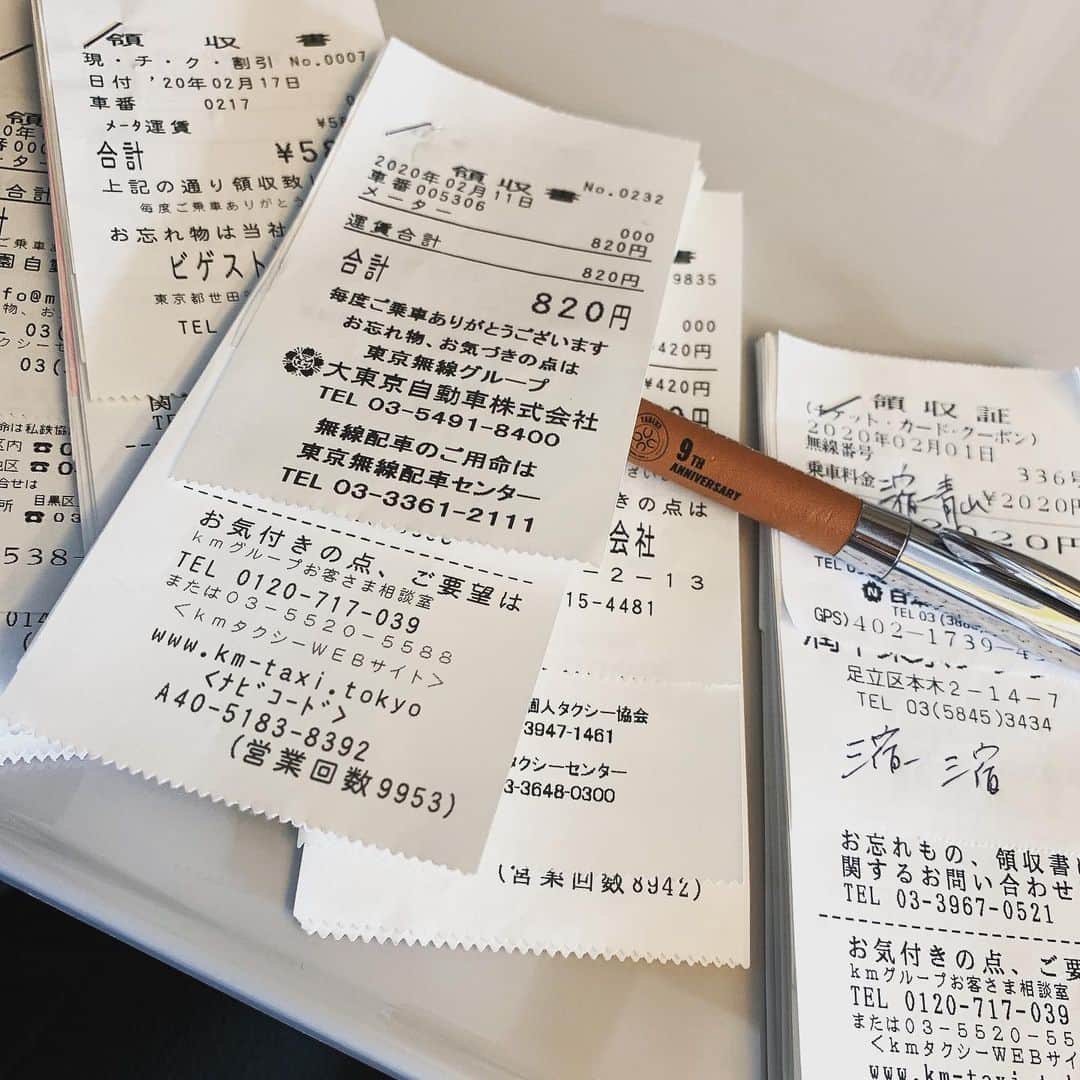 領収書
現・チ・ク・割引 No.0007
日付 '20年02月17日
車番 0217
メータ運賃
合計 ¥58
上記の通り領収致し
毎度ご乗車ありがとう
お忘れ物は当社
ビゲスト
東京都世田
TEL
領収書
No.0232
2020年02月11日
車番005306
000
メーター 820円
運賃合計 820円
合計 820円
毎度ご乗車ありがとうございます
お忘れ物、お気づきの点は
東京無線グループ
大東京自動車株式会社
TEL 03-5491-8400
無線配車のご用命は
東京無線配車センター
TEL 03-3361-2111
お気付きの点、ご要望は
kmグループお客さま相談室
TEL 0120-717-039
または03-5520-5588
<kmタクシーWEBサイト>
www.km-taxi.tokyo
<ナビコード>
A40-5183-8392
(営業回数9953)
9835
000
¥420円
¥420円
の点は
会社
2-13
15-4481
個人タクシー協会
3947-1461
タクシーセンター
3-3648-0300
(営業回数8942)
9TH
ANNIVERSARY
領収証
(チケット・カード・クーポン)
2020年02月01日
無線番号 336号
乗車料金 ¥2020円
青山
TEL 03
TEL 03
GPS)402-1739-4
足立区本木2-14-7
TEL 03(5845)3434
三宿 三宿
お忘れもの、領収書に
関するお問い合わせ
TEL 03-3967-0521
お気付きの点、ご要
kmグループお客さま相談室
TEL 0120-717-039
または03-5520-55
<kmタクシーWEBサイ
www.km-taxi.tok